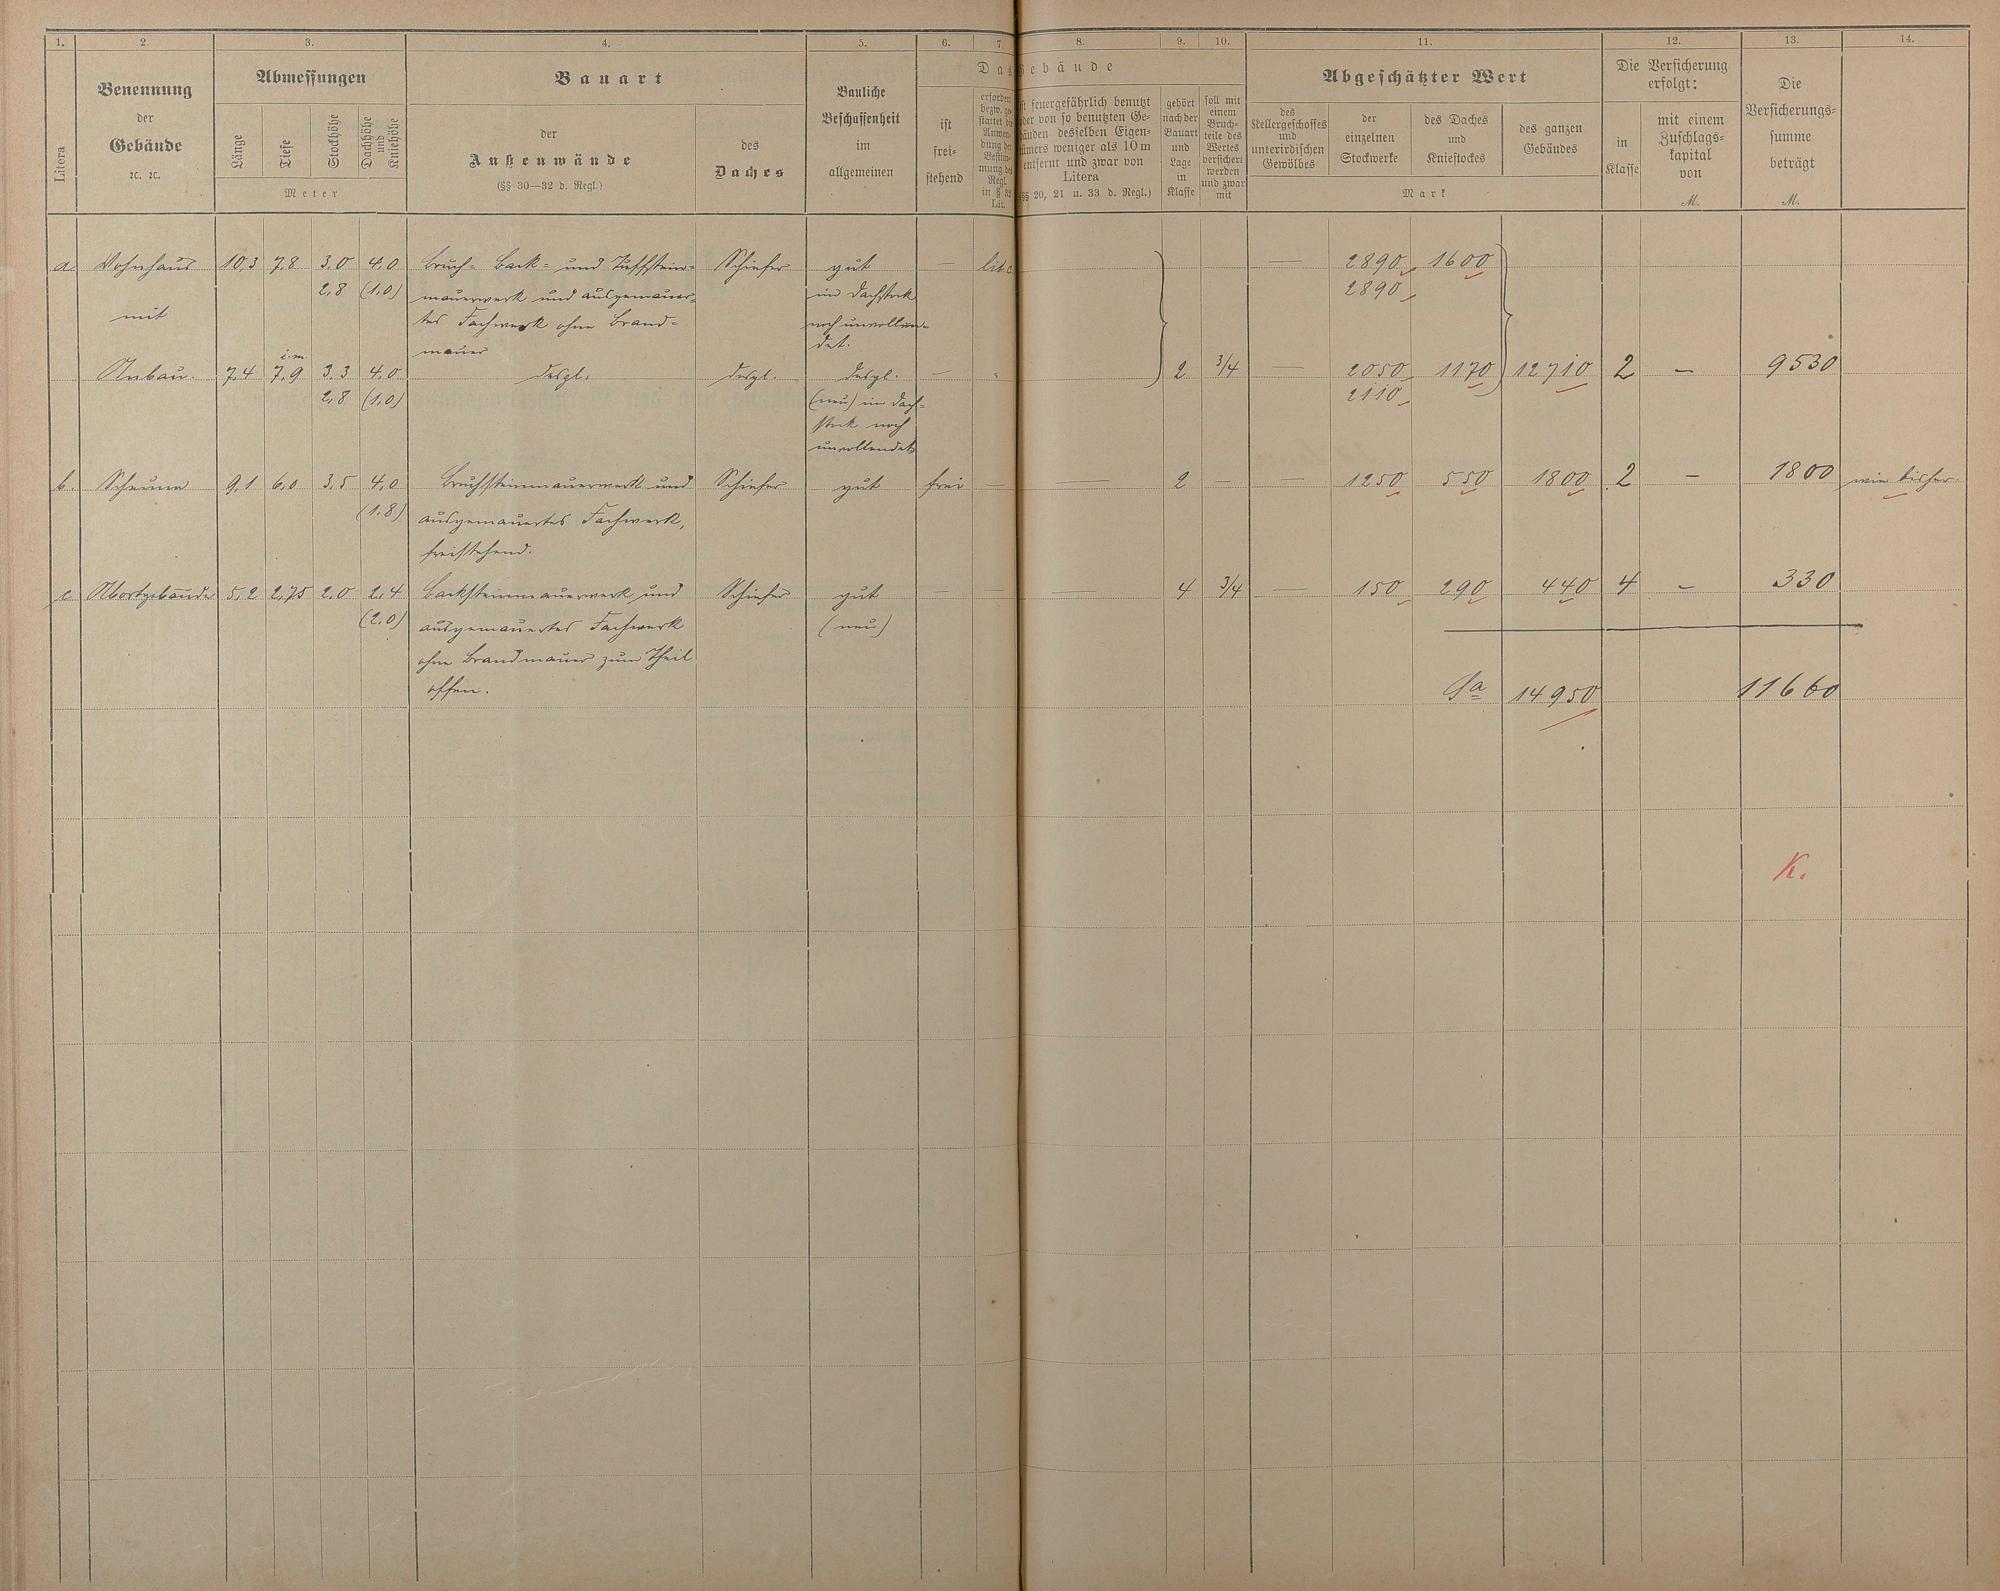 1. 2. 3. 4. 5. 6. 7. 8. 9. 10. 11. 12. 13. 14.
Litera
Benennung
der
Gebäude
ꝛc. ꝛc.
Abmessungen
Länge
Tiefe
Stockhöhe
Dachhöhe
und
Kniehöhe
Meter
Bauart
der
Außenwände
(§§ 30—32 d. Regl.)
des
Daches
Bauliche
Beschaffenheit
im
allgemeinen
Das Gebäude
ist
frei-
stehend
Lit.
ist feuergefährlich benutzt
oder von so benutzten Ge-
bäuden desselben Eigen-
tümers weniger als 10 m
entfernt und zwar von
Litera
(§§ 20, 21 u. 33 d. Regl.)
gehört
nach der
Bauart
und
Lage
in
Klasse
soll mit
einem
Bruch-
teile des
Wertes
versichert
werden
und zwar
mit
Abgeschätzter Wert
des
Kellergeschosses
und
unterirdischen
Gewölbes
der
einzelnen
Stockwerke
des Daches
und
Kniestockes
des ganzen
Gebäudes
Mark
Die Versicherung
erfolgt:
in
Klasse
mit einem
Zuschlags-
kapital
von
M.
Die
Versicherungs-
summe
beträgt
M.
a. Wohnhaus 10,3 7,8 3,0 4,0 Bruch- Back- und Tuffstein- Schiefer gut — lit c — 2890 1600
2,8 (1,0) mauerwerk und ausgemauer- im Dachstock 2890
mit tes Fachwerk ohne Brand- noch unvollen-
mauer det.
i. m.
Anbau. 7,4 7,9 3,3 4,0 desgl. desgl. desgl. — " 2 3/4 — 2050 1170 12710 2 — 9530
2,8 (1,0) (neu) im Dach- 2110
stock noch
unvollendet
b. Scheune 9,1 6,0 3,5 4,0 Bruchsteinmauerwerk und Schiefer gut frei — — 2 — — 1250 550 1800 2 — 1800 wie bisher.
(1,8) ausgemauertes Fachwerk,
freistehend.
c Abortgebäude 5,2 2,75 2,0 2,4 Backsteinmauerwerk und Schiefer gut — — — 4 3/4 — 150 290 440 4 — 330
(2,0) ausgemauertes Fachwerk (neu)
ohne Brandmauer zum Theil
offen.
Sa 14950 11660
K.